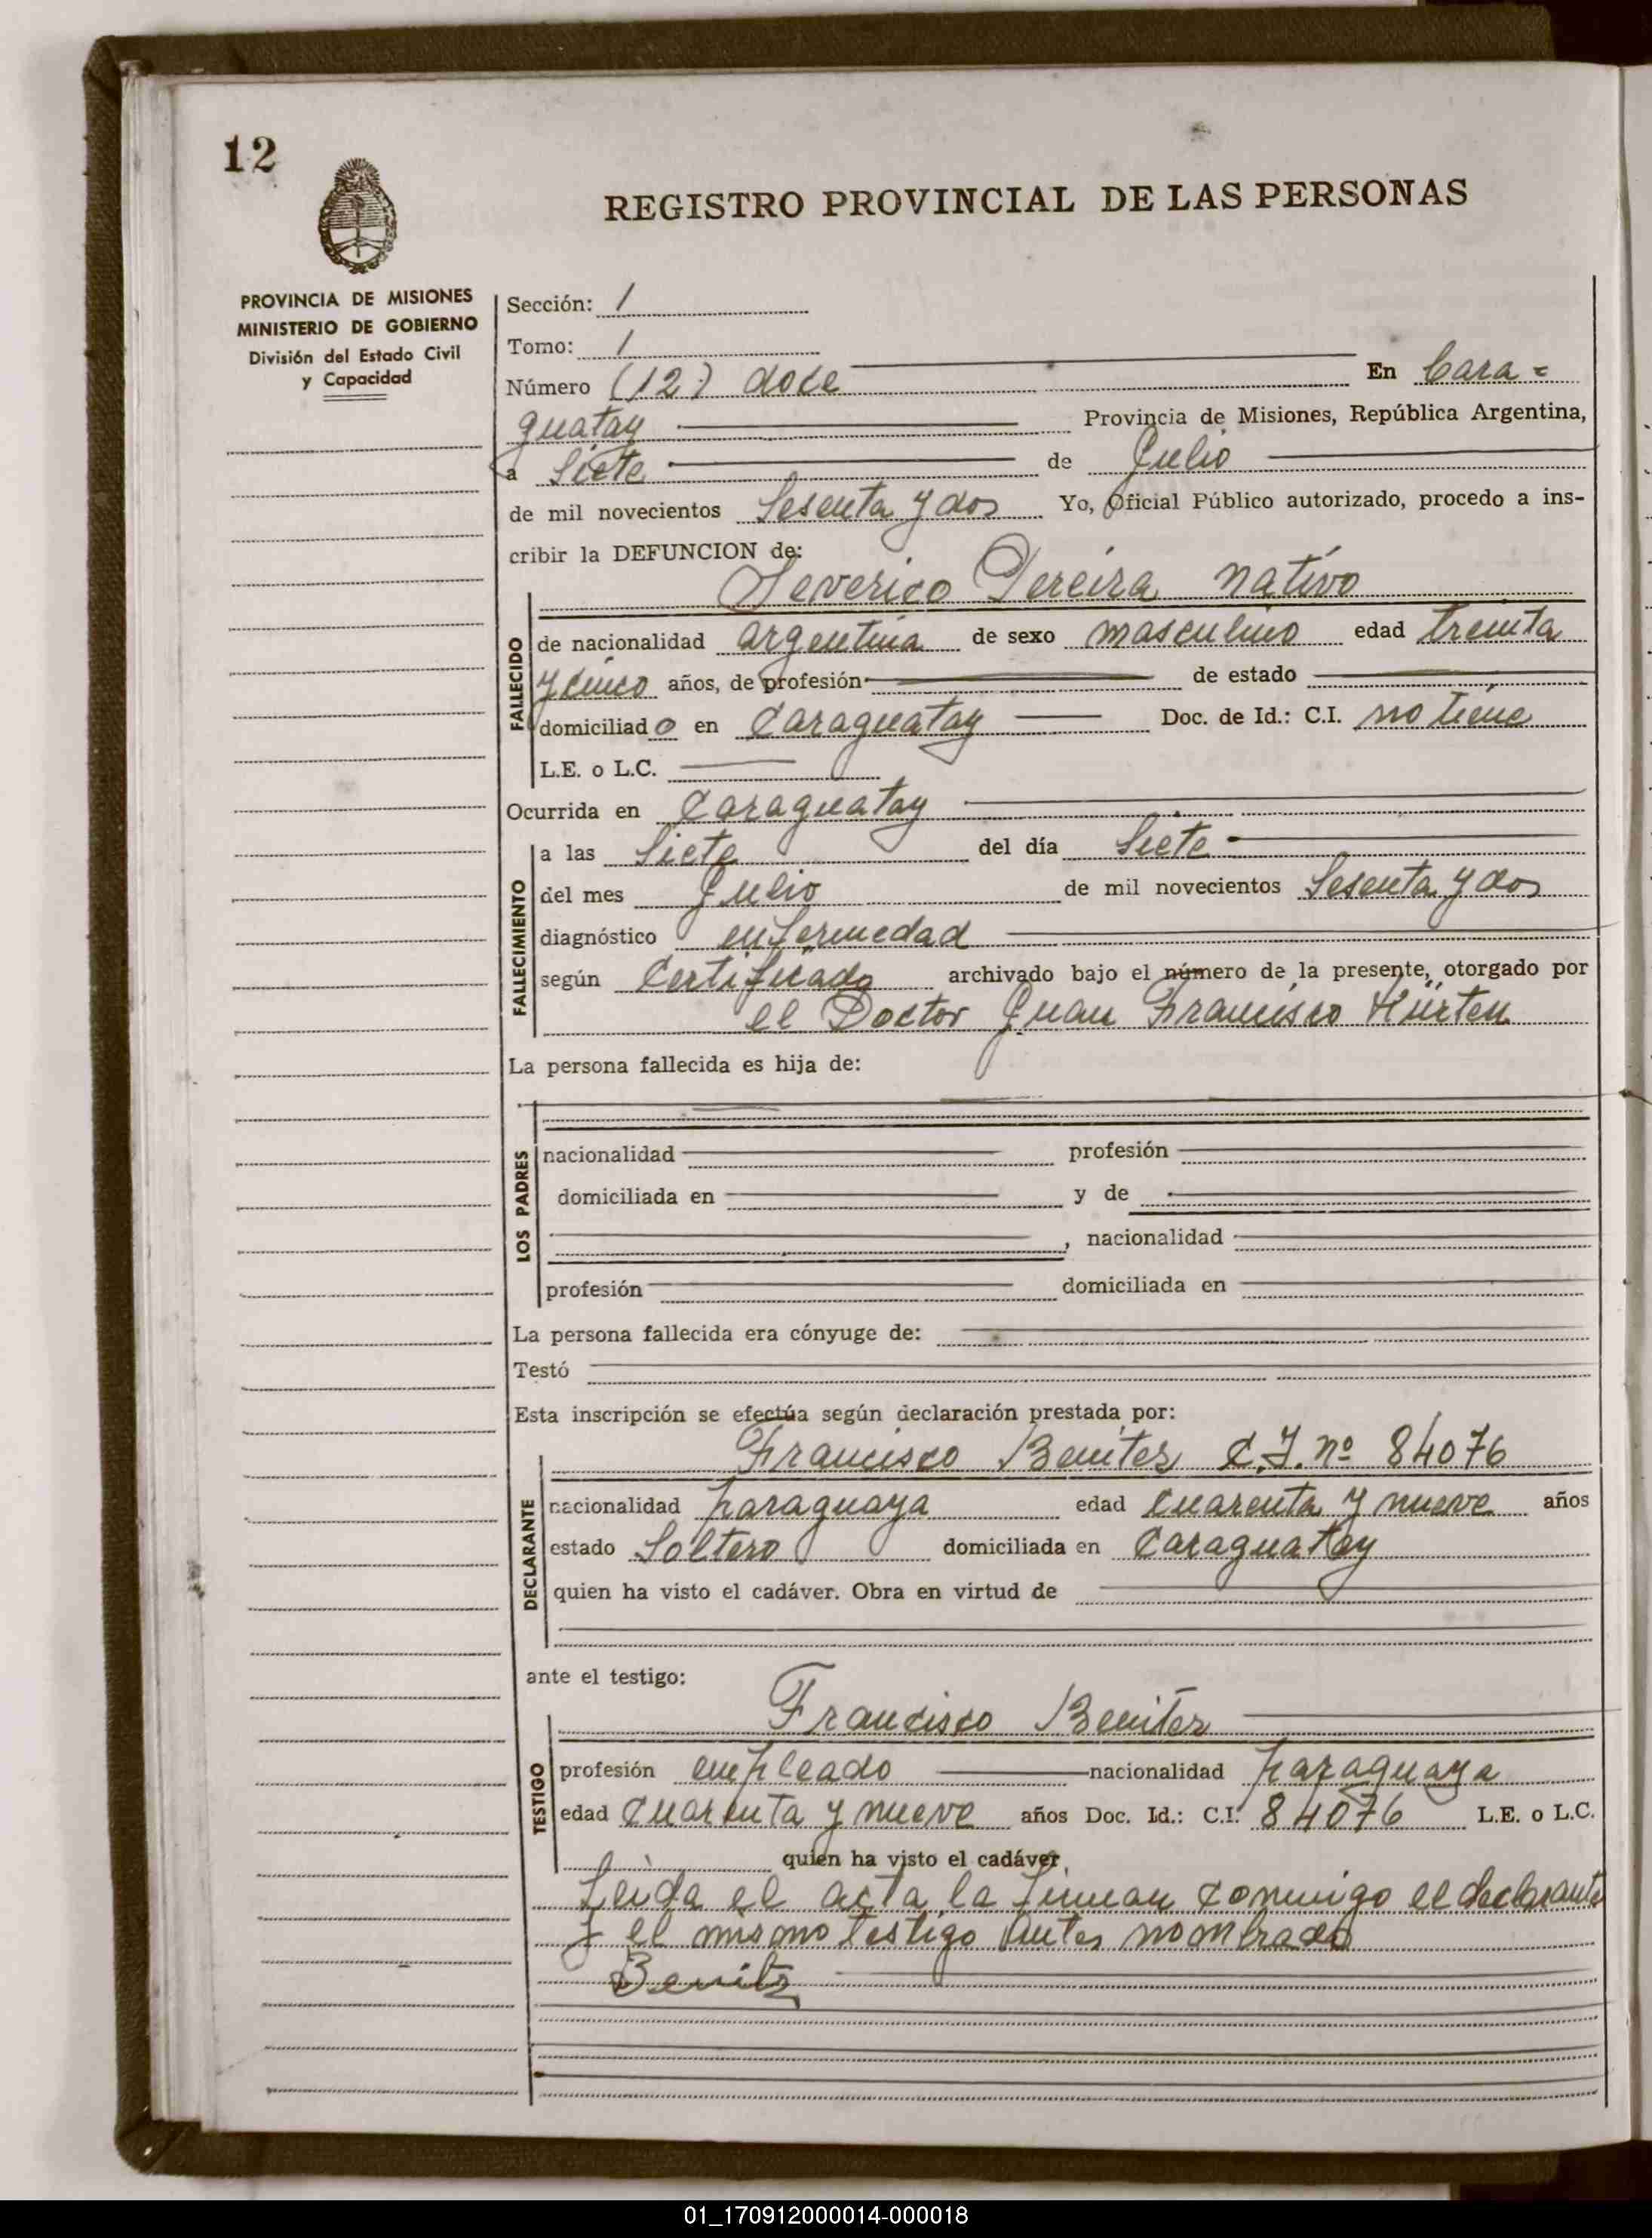 12
REGISTRO PROVINCIAL DE LAS PERSONAS
PROVINCIA DE MISIONES
MINISTERIO DE GOBIERNO
División del Estado Civil
y Capacidad
Sección: 1
Tomo: 1
Número (12) doce En Cara=
guatay Provincia de Misiones, República Argentina,
a Siete de Julio
de mil novecientos Sesenta y dos Yo, Oficial Público autorizado, procedo a ins-
cribir la DEFUNCION de:
Severico Pereira nativo
FALLECIDO
de nacionalidad argentina de sexo masculino edad treinta
y cinco años, de profesión de estado
domiciliado en Caraguatay Doc. de Id.: C.I. no tiene
L.E. o L.C.
Ocurrida en Caraguatay
FALLECIMIENTO
a las Siete del día Siete
del mes Julio de mil novecientos Sesenta y dos
diagnóstico enfermedad
según Certificado archivado bajo el número de la presente, otorgado por
el Doctor Juan Francisco Hürten
La persona fallecida es hija de:
LOS PADRES
nacionalidad profesión
domiciliada en y de
, nacionalidad
profesión domiciliada en
La persona fallecida era cónyuge de:
Testó
Esta inscripción se efectúa según declaración prestada por:
Francisco Benitez C.I. nº 84076
DECLARANTE
nacionalidad paraguaya edad Cuarenta y nueve años
estado Soltero domiciliada en Caraguatay
quien ha visto el cadáver. Obra en virtud de
ante el testigo:
Francisco Benitez
TESTIGO
profesión empleado nacionalidad paraguaya
edad Cuarenta y nueve años Doc. Id.: C.I. 84076 L.E. o L.C.
quien ha visto el cadáver,
Leída el acta la firman conmigo el declarante
y el mismo testigo antes nombrado
Benitz
01_170912000014-000018